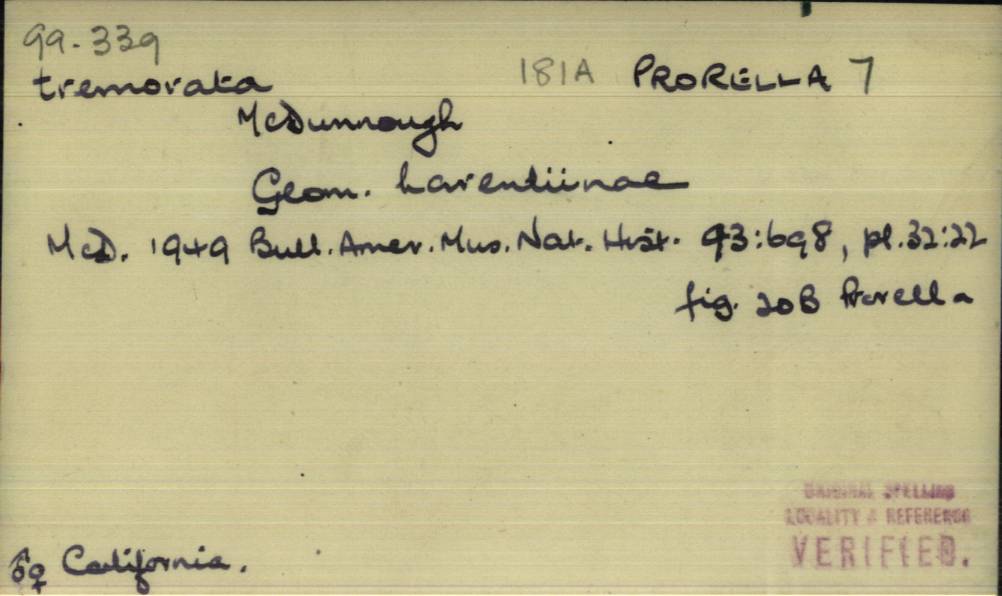 99.339
tremorata 181A PRORELLA 7
McDunnough
Geom. Larentiinae
McD. 1949 Bull. Amer. Mus. Nat. Hist. 93:698, pl.32:22
fig. 20B Prorella
ORIGINAL SPELLING
LOCALITY & REFERENCE
VERIFIED.
♂♀ California.